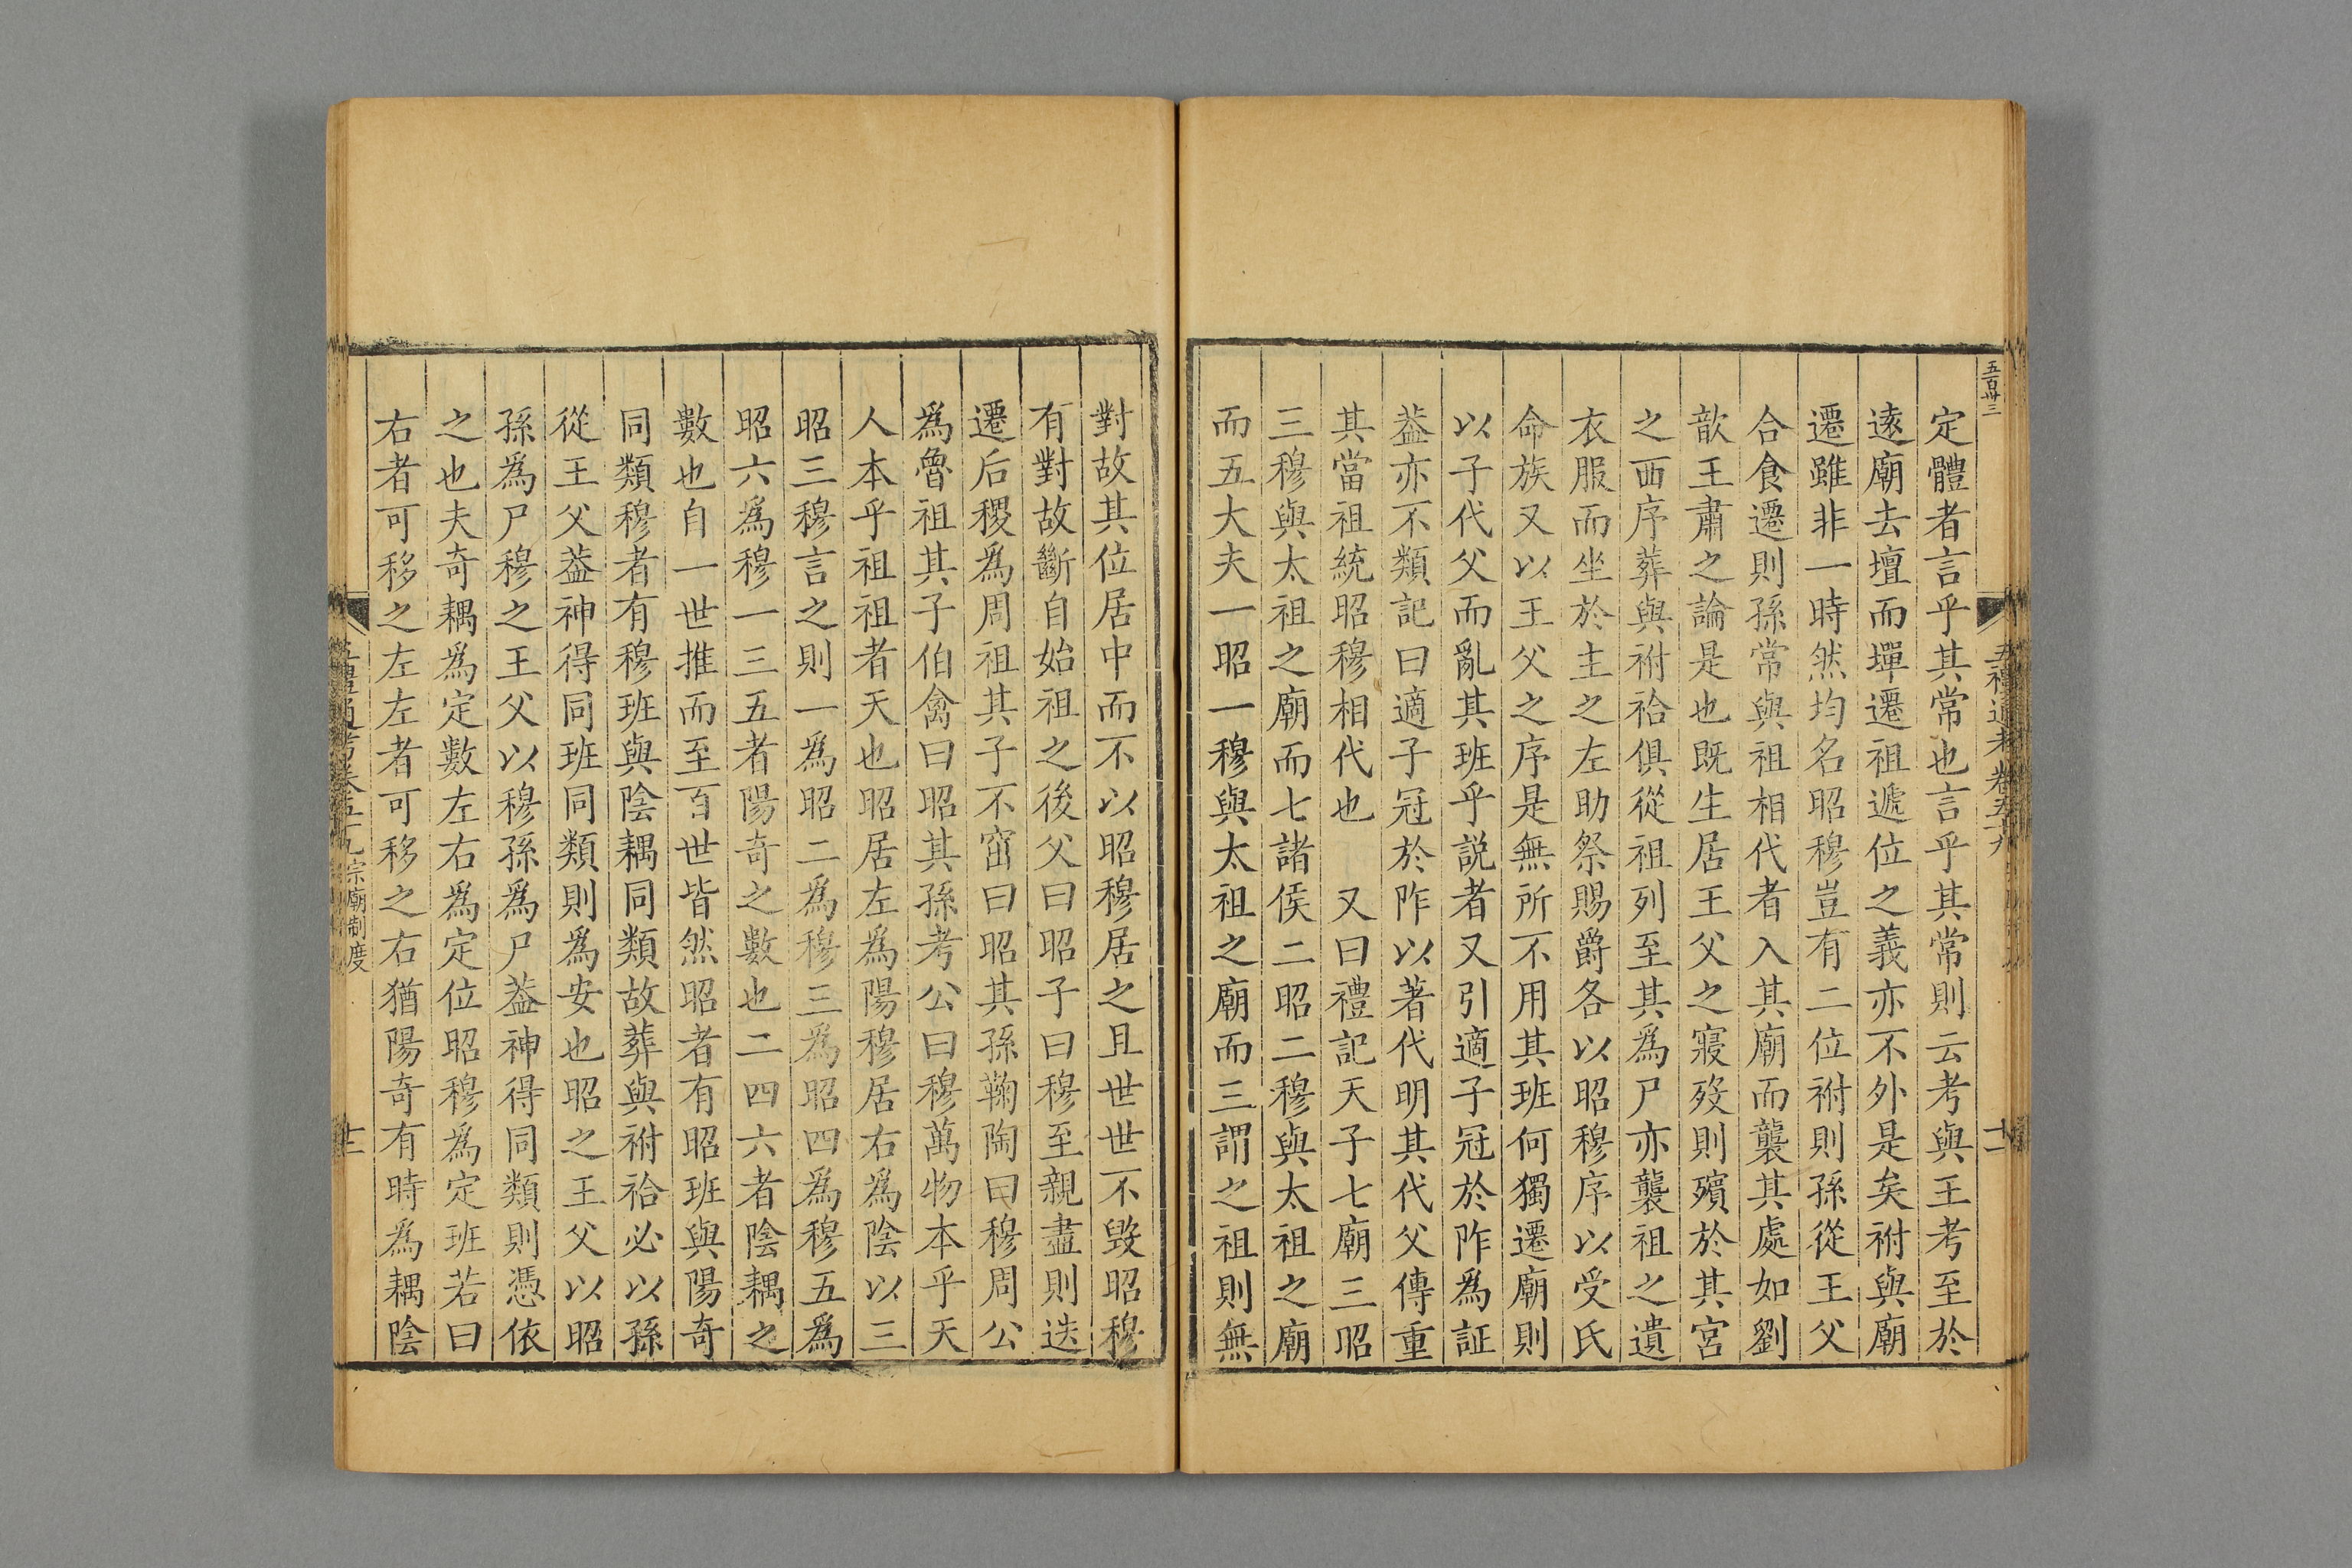 五百卌三
定體者言乎其常也言乎其常則云考與王考至於
遠廟去壇而墠遷祖遞位之義亦不外是矣祔與廟
遷雖非一時然均名昭穆豈有二位祔則孫從王父
合食遷則孫常與祖相代者入其廟而襲其處如劉
歆王肅之論是也既生居王父之寢歿則殯於其宮
之西序葬與祔祫俱從祖列至其為尸亦襲祖之遺
衣服而坐於主之左助祭賜爵各以昭穆序以受氏
命族又以王父之序是無所不用其班何獨遷廟則
以子代父而亂其班乎説者又引適子冠於阼爲証
葢亦不類記曰適子冠於阼以著代明其代父傳重
其當祖統昭穆相代也　又曰禮記天子七廟三昭
三穆與太祖之廟而七諸侯二昭二穆與太祖之廟
而五大夫一昭一穆與太祖之廟而三謂之祖則無
對故其位居中而不以昭穆居之且世世不毀昭穆
有對故斷自始祖之後父曰昭子曰穆至親盡則迭
遷后稷爲周祖其子不窋曰昭其孫鞠陶曰穆周公
爲魯祖其子伯禽曰昭其孫考公曰穆萬物本乎天
人本乎祖祖者天也昭居左爲陽穆居右爲陰以三
昭三穆言之則一爲昭二爲穆三爲昭四爲穆五爲
昭六爲穆一三五者陽奇之數也二四六者陰耦之
數也自一世推而至百世皆然昭者有昭班與陽奇
同類穆者有穆班與陰耦同類故葬與祔祫必以孫
從王父葢神得同班同類則爲安也昭之王父以昭
孫爲尸穆之王父以穆孫爲尸葢神得同類則憑依
之也夫奇耦爲定數左右爲定位昭穆爲定班若曰
右者可移之左左者可移之右猶陽奇有時爲耦陰
宗廟制度